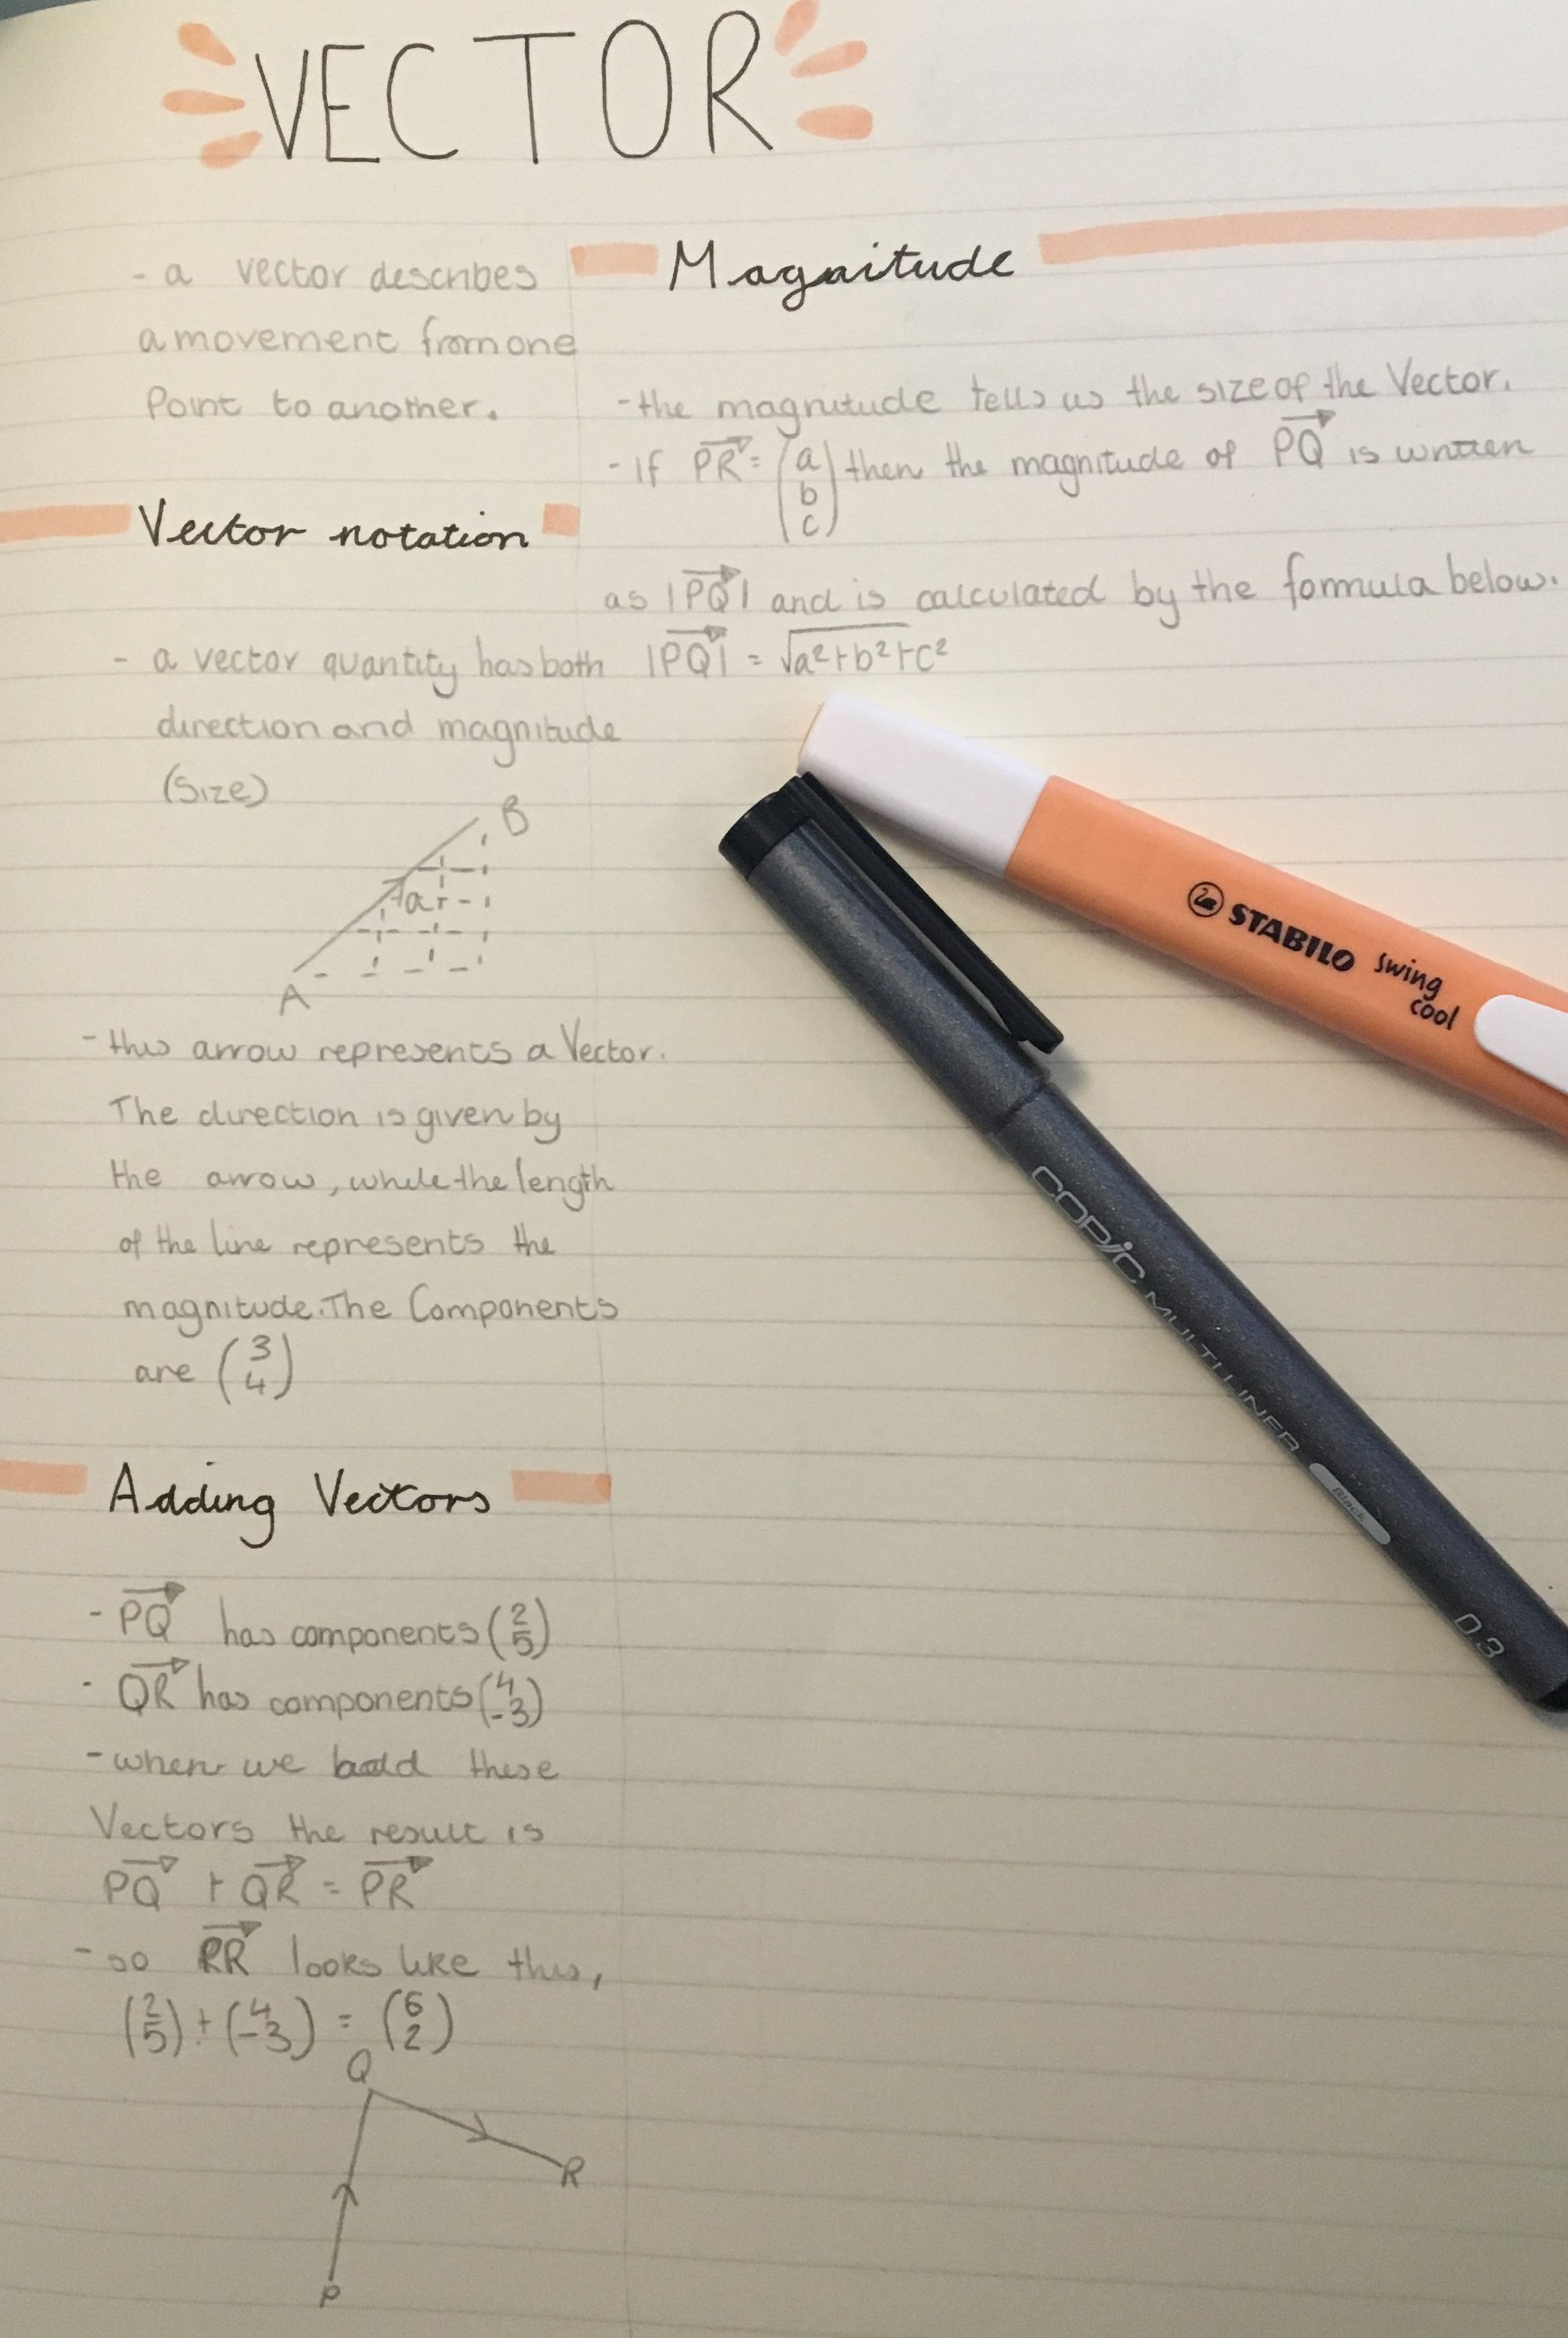 VECTOR
- a vector describes
a movement from one
Point to another.
Vector notation
- a vector quantity has both
direction and magnitude
(size)
B
a
A
- this arrow represents a Vector.
The direction is given by
the arrow, while the length
of the line represents the
magnitude. The Components
are (3
4)
Adding Vectors
- PQ has components (2
5)
- QR has components (4
-3)
- when we add these
Vectors the result is
PQ + QR = PR
- so PR looks like this,
(2
5) + (4
-3) = (6
2)
Q
R
P
Magnitude
- the magnitude tells us the size of the Vector.
- If PR = (a
b
c) then the magnitude of PQ is written
as |PQ| and is calculated by the formula below.
|PQ| = √a²+b²+c²
STABILO swing
cool
COPIC MULTILINER Black 0.3